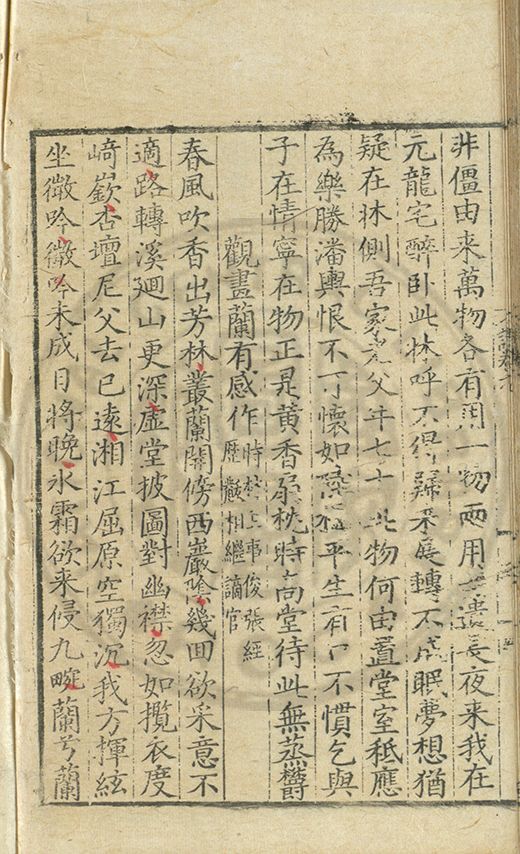 非僵由来萬物各有用一物兩用 長夜来我在
元龍宅醉卧此牀呼不得歸来展轉不成眠夢想猶
疑在牀側吾家老父年七十此物何由置堂室秪應
為樂勝潘輿恨不可懷如 橘平生有口不慣乞與
子在情寧在物正是黄香扇枕時向堂待此無蒸欝
觀畫蘭有感作時 事俊張經歷 相繼謫官
春風吹香出芳林叢蘭開傍西巖陰幾囬欲采意不
適路轉溪迴山更深虛堂披圖對幽襟忽如攬衣度
﨑嶔杏壇尼父去已遠湘江屈原空獨沉我方揮絃
坐微吟微吟未成日將晚氷霜欲来侵九畹蘭兮蘭